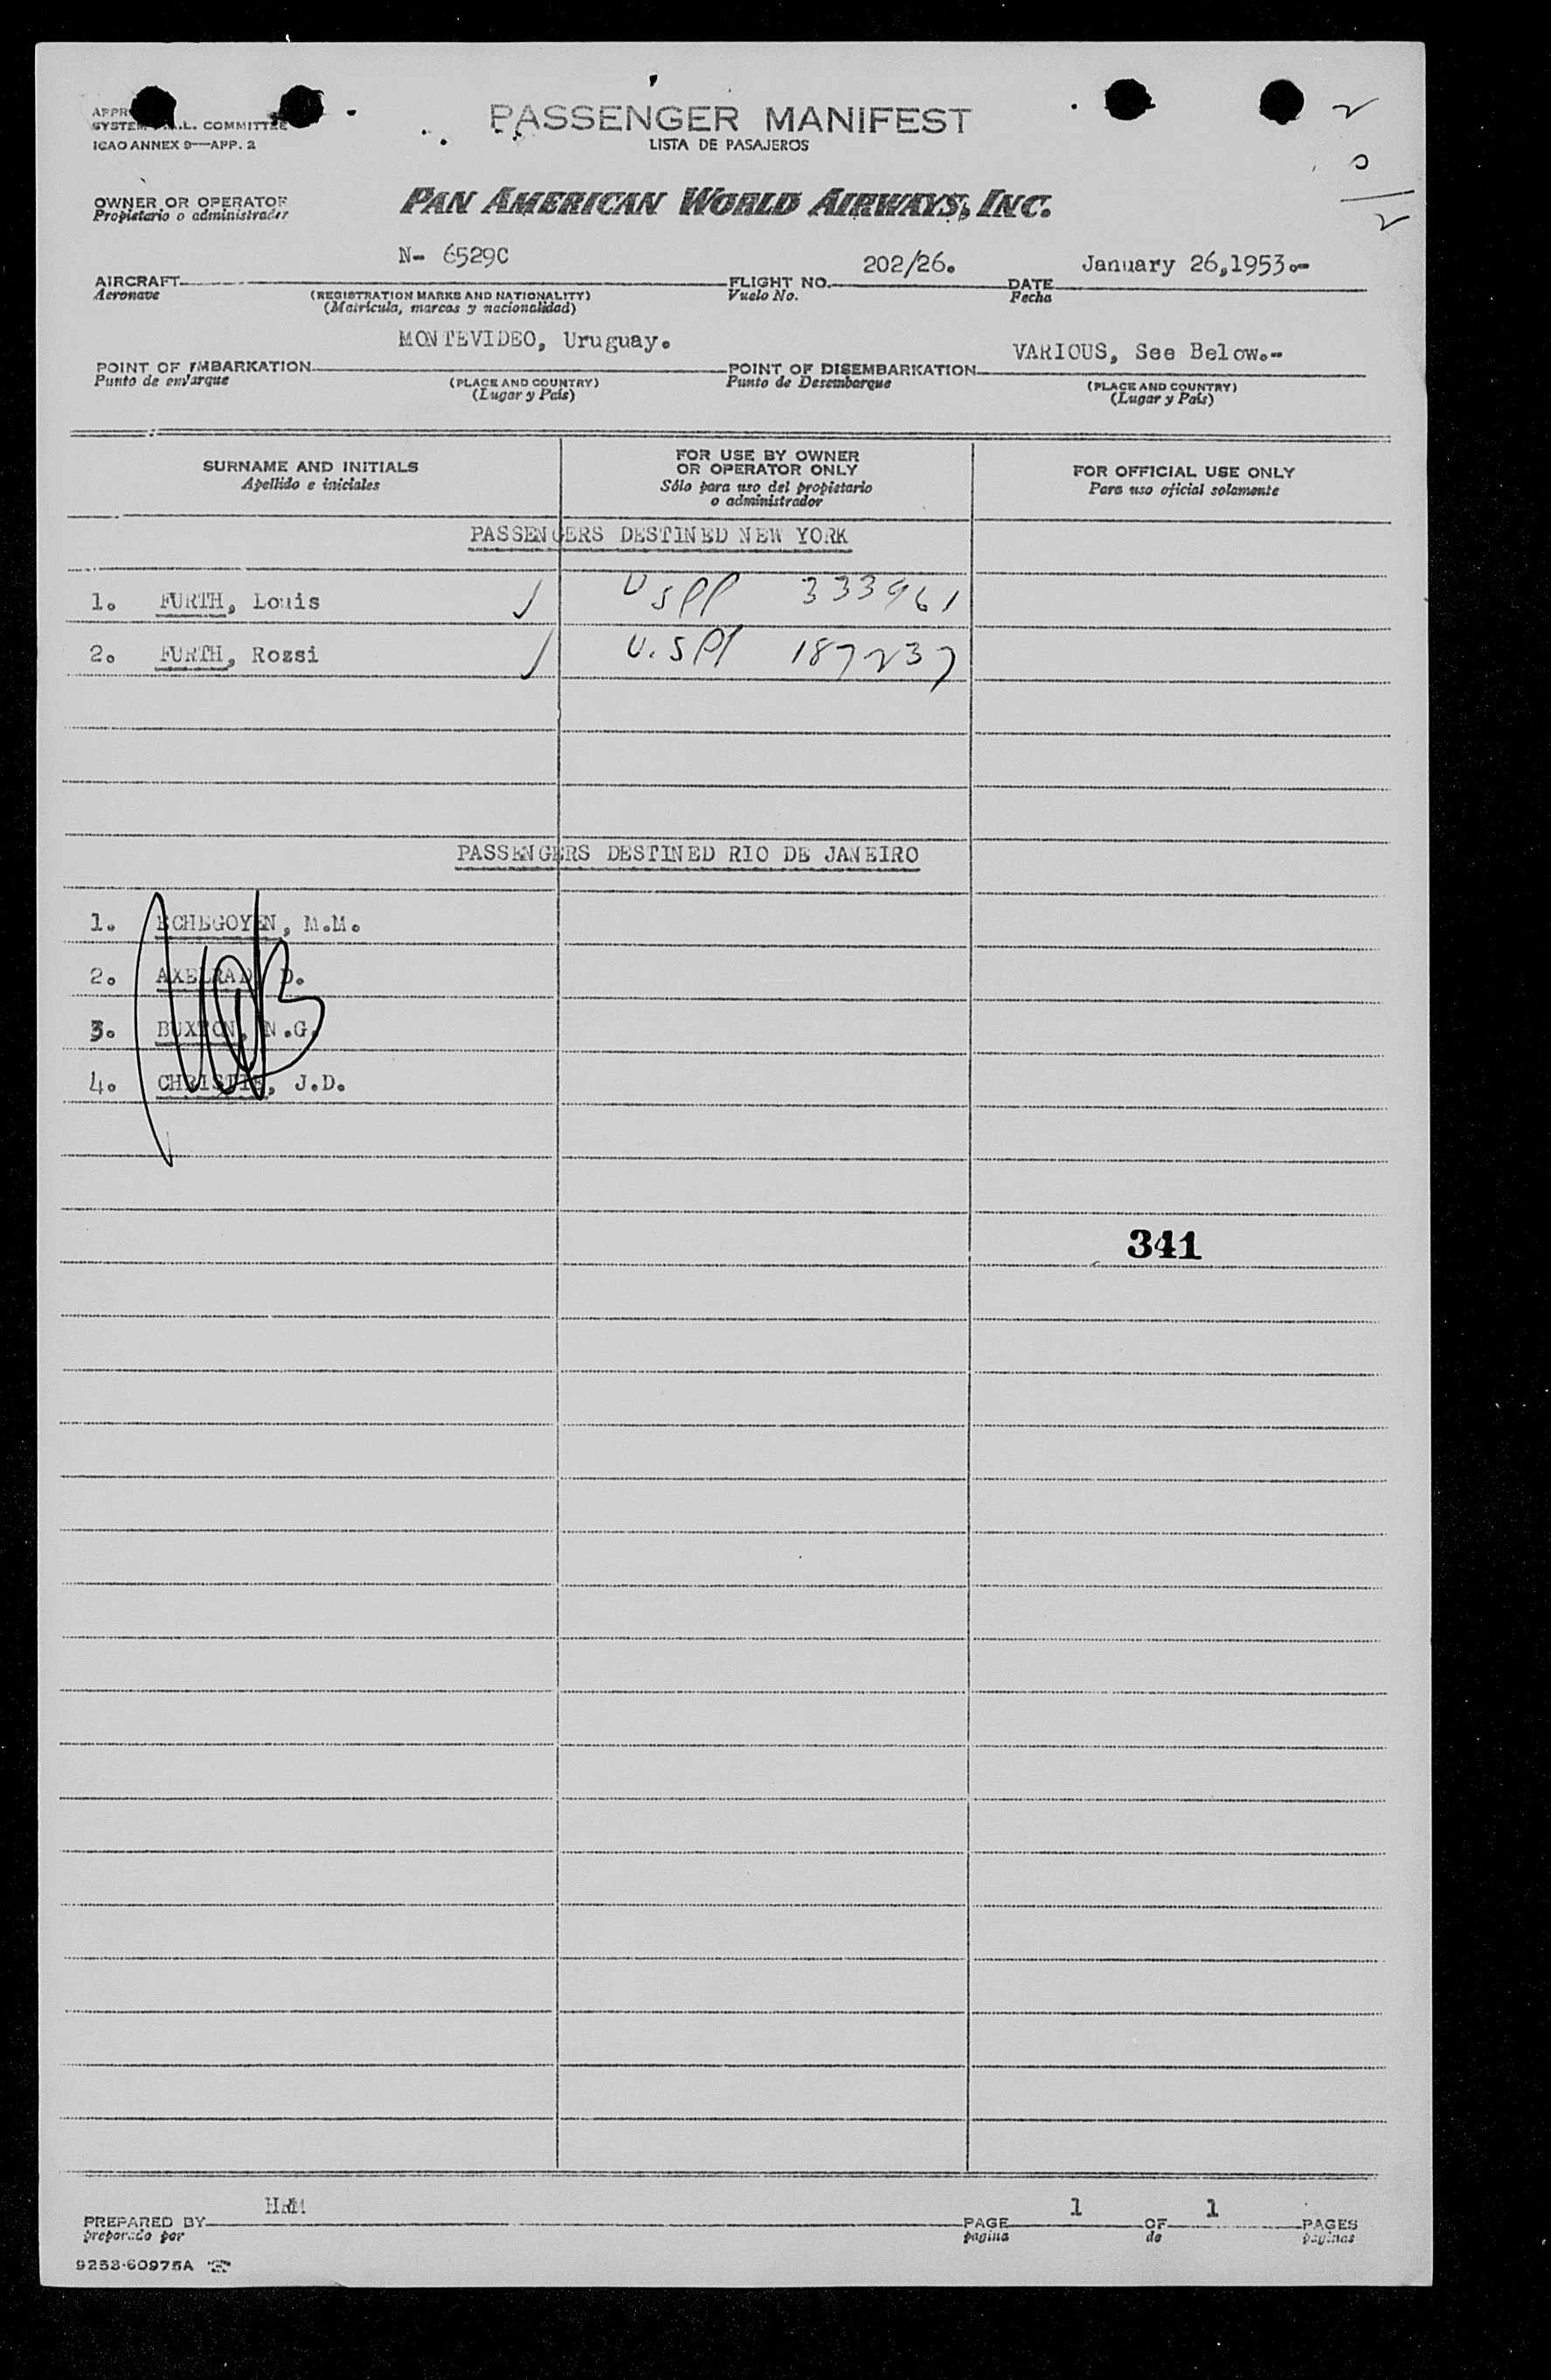 PASSENGER MANIFEST
LISTA DE PASAJEROS
SYSTEM COMMITTEE
ICAO ANNEX 9—APP. 2
OWNER OR OPERATOR
Propietario o administrador
PAN AMERICAN WORLD AIRWAYS, INC.
2
0
2
N- 6529C
202/26.
January 26,1953.-
AIRCRAFT
Aeronave
(REGISTRATION MARKS AND NATIONALITY)
(Matrícula, marcas y nacionalidad)
FLIGHT NO.
Vuelo No.
DATE
Fecha
MONTEVIDEO, Uruguay.
VARIOUS, See Below.-
POINT OF EMBARKATION
Punto de embarque
(PLACE AND COUNTRY)
(Lugar y País)
POINT OF DISEMBARKATION
Punto de Desembarque
(PLACE AND COUNTRY)
(Lugar y País)
SURNAME AND INITIALS
Apellido e iniciales
FOR USE BY OWNER
OR OPERATOR ONLY
Sólo para uso del propietario
o administrador
FOR OFFICIAL USE ONLY
Para uso oficial solamente
PASSENGERS DESTINED NEW YORK
1. FURTH, Louis USPP 333961
2. FURTH, Rozsi U.SPP 187237
PASSENGERS DESTINED RIO DE JANEIRO
1. ECHEGOYEN, M.M.
2. AXELRAD, D.
3. BUXTON, N.G.
4. CHRISTIE, J.D.
341
HRM
PREPARED BY
preparado por
PAGE 1 OF 1 PAGES
pagina de paginas
9253-60975A